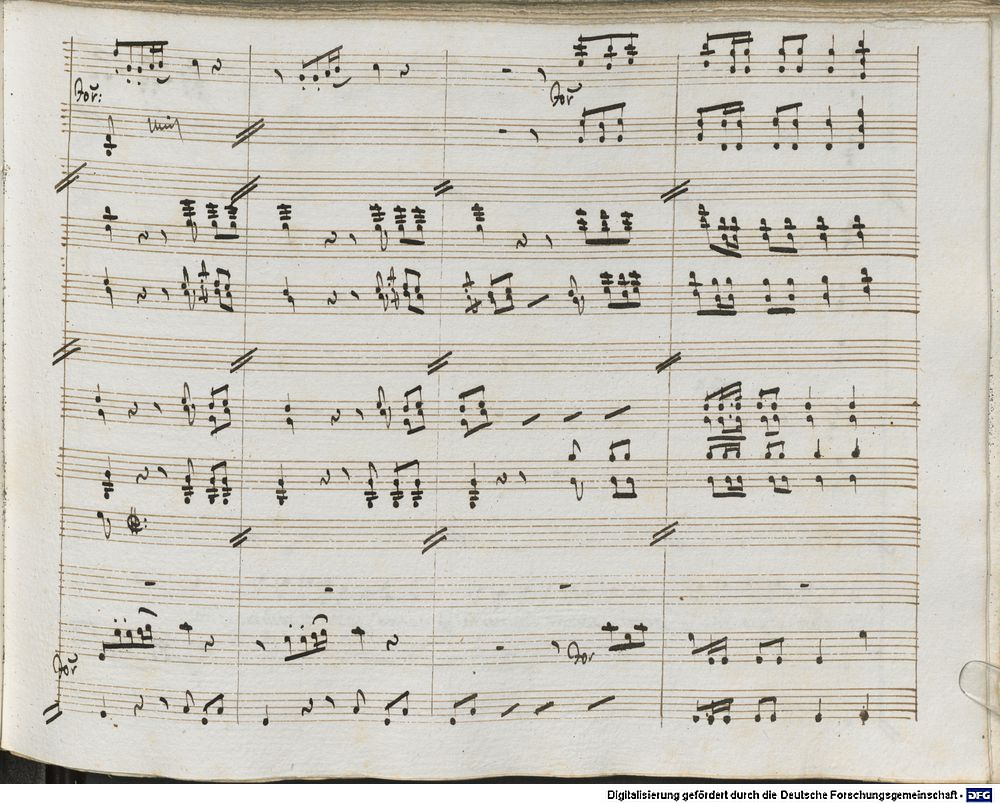 for:
for
unis
for
for
Digitalisierung gefördert durch die Deutsche Forschungsgemeinschaft - DFG